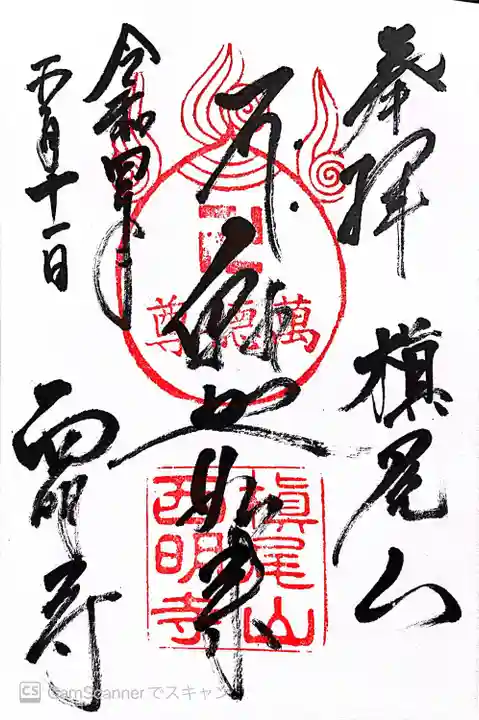 奉拝 槇尾山
如来
卍
萬徳尊
槇尾山
西明寺
令和四年
月十一日
西明寺
CS CamScannerでスキャン